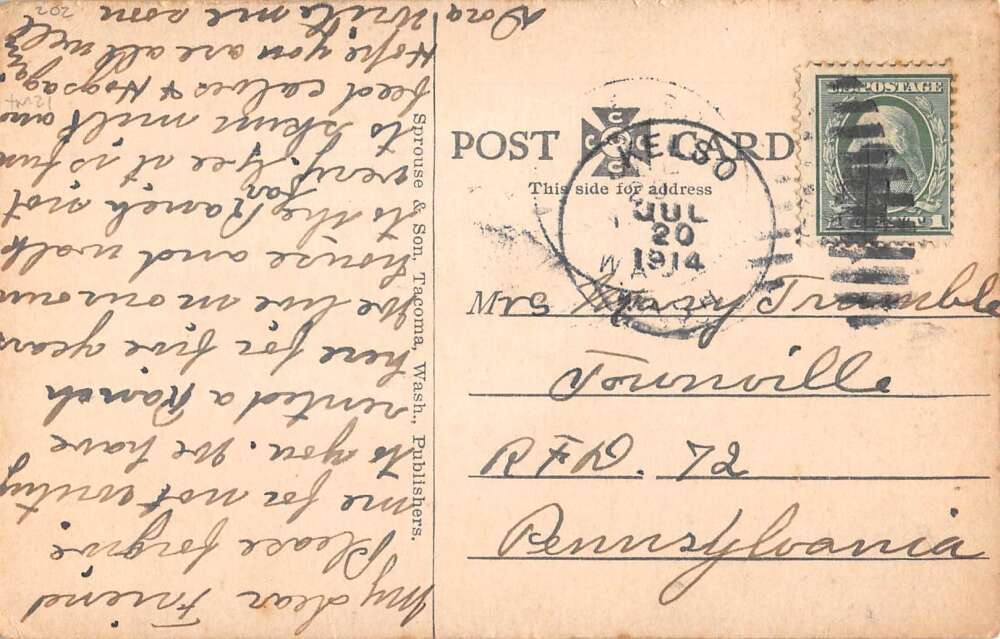 My dear Friend
Please forgive
me for not writing
to you. We have
rented a Ranch
here for five years
We live in our own
house and walk
to the Ranch not
very far
Gee it is fun
to skim milk and
feed calves & Hogs again
Hope you are all well
Write me soon
Dora
202
Sprouse & Son, Tacoma, Wash., Publishers.
POST CARD
This side for address
KELSO
JUL
20
1914
WASH
U.S. POSTAGE
1
Mrs Trumble
Townville
RFD. 72
Pennsylvania